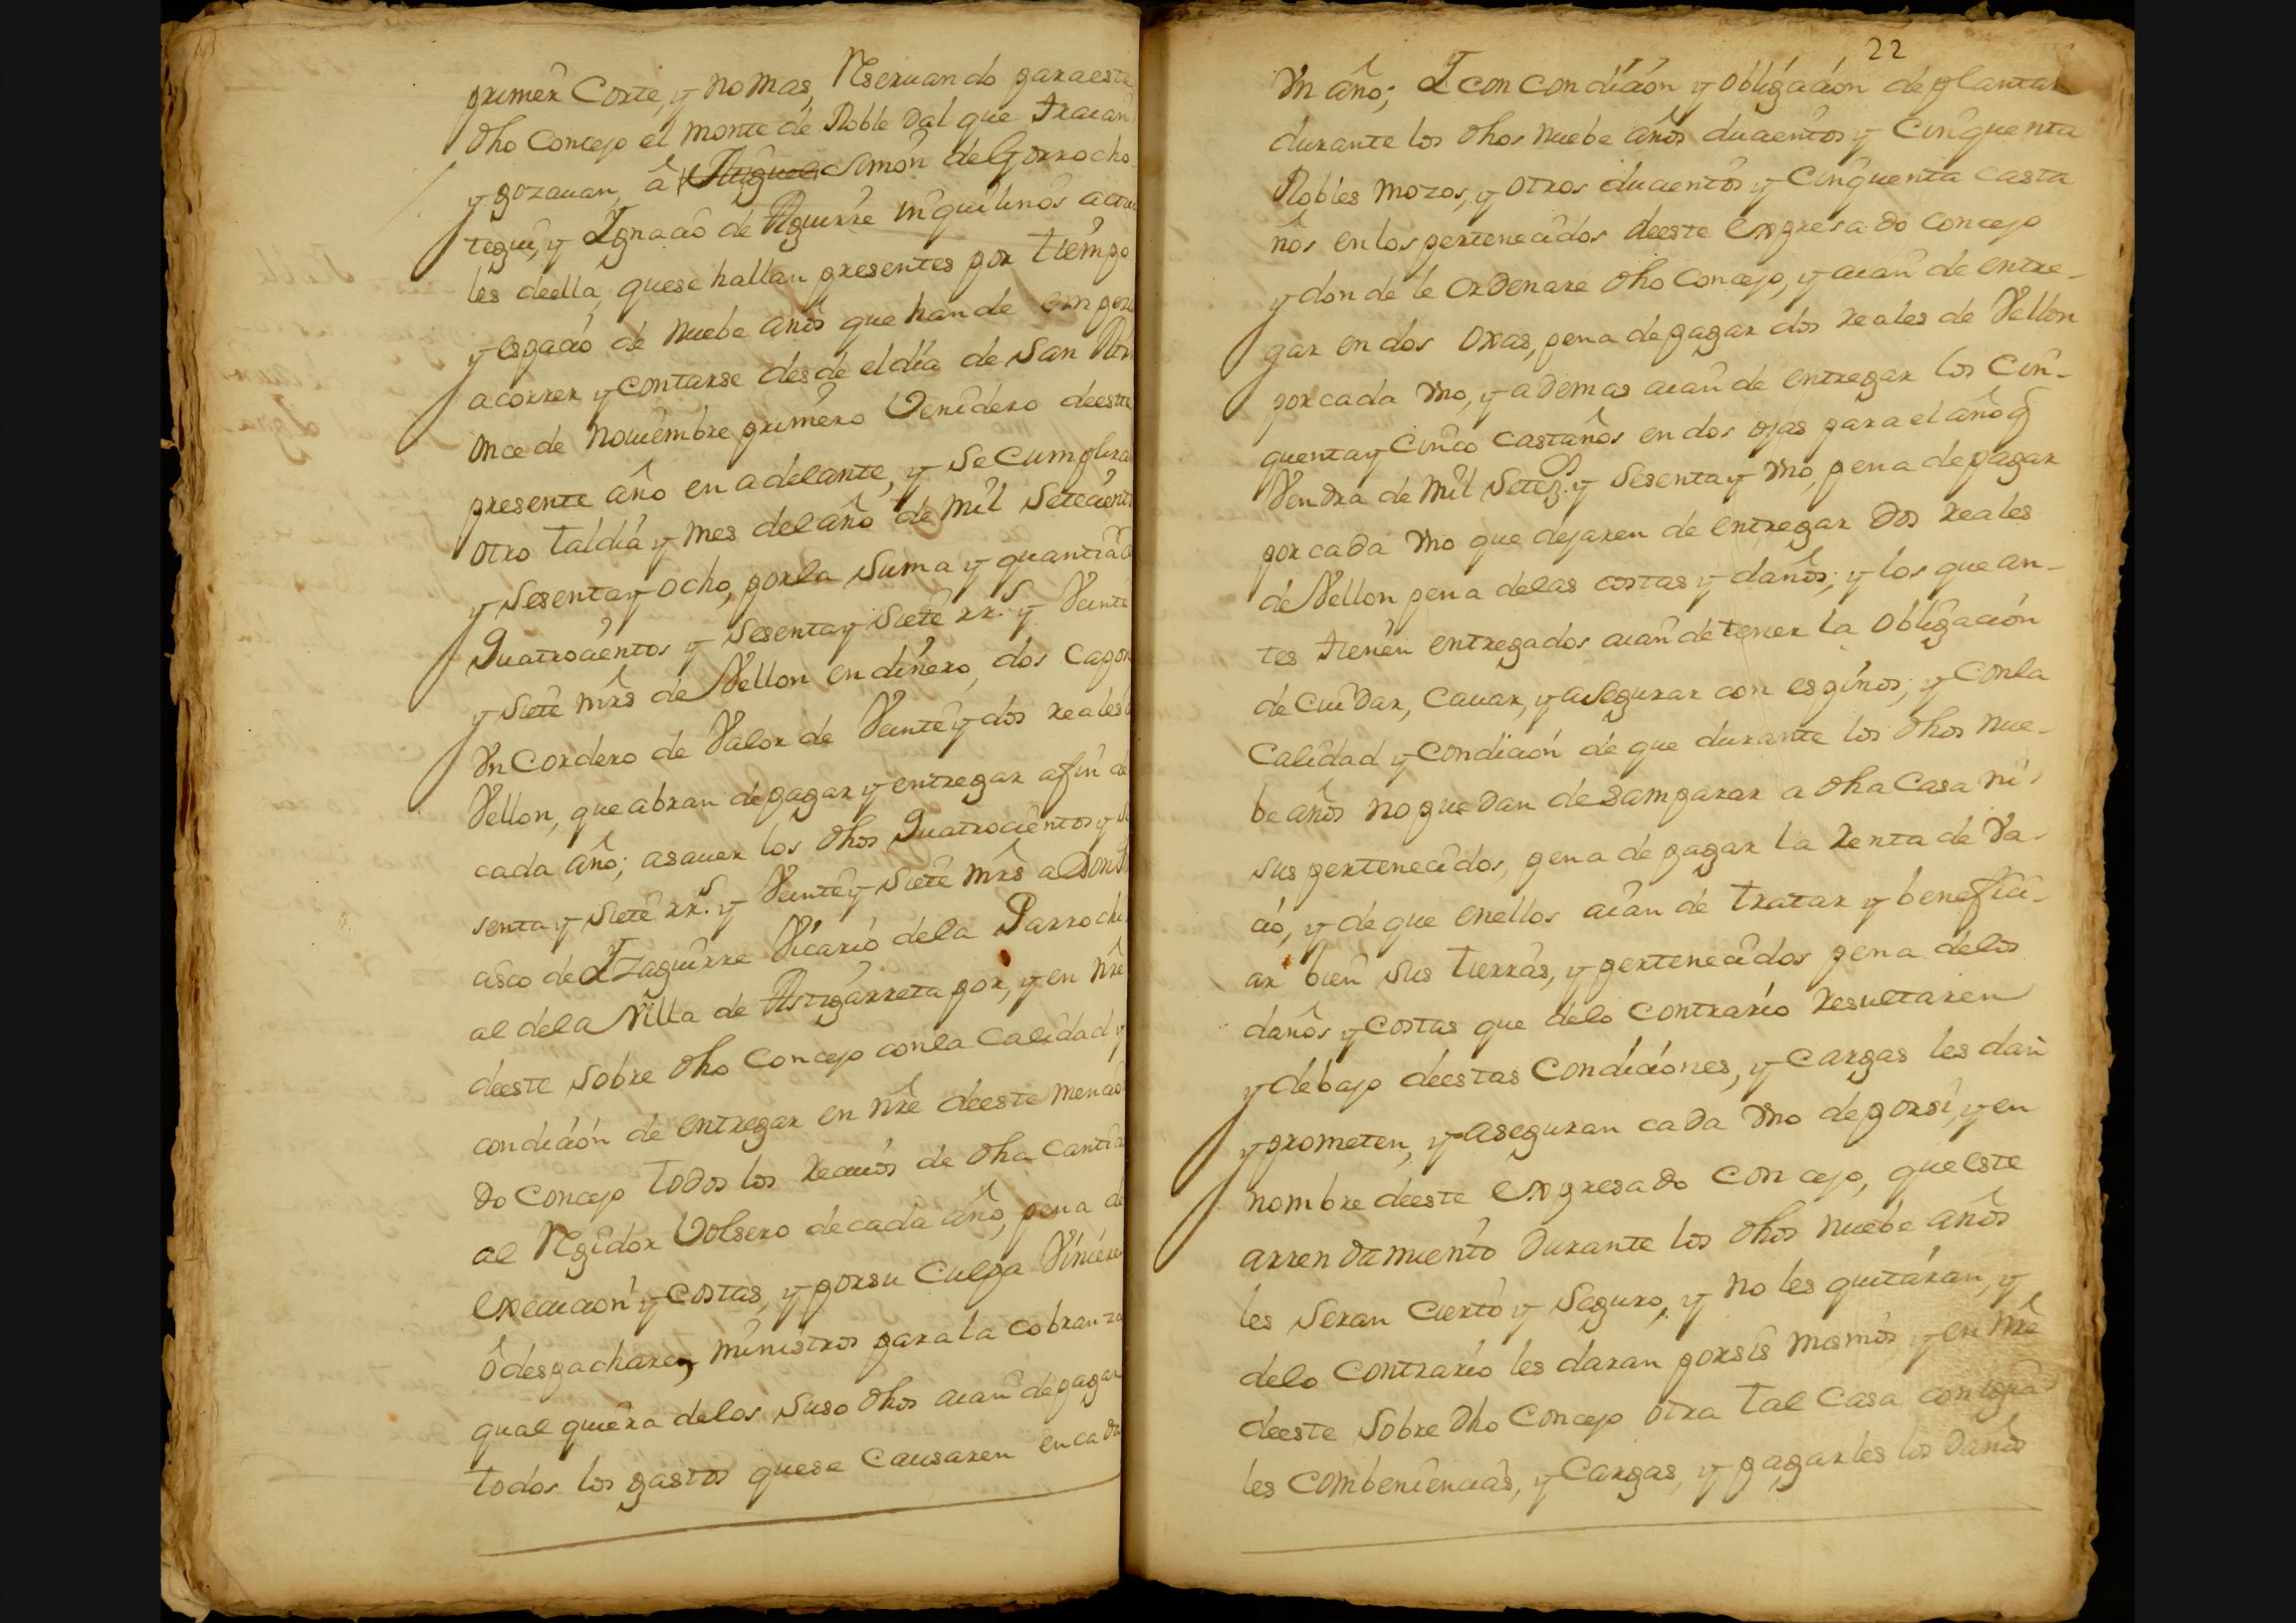 primer Corte, y no mas, Rseruando para este
dho Concejo el monte de Roble dal que traian
y gozauan, â Miguel Simon de Gorrocha
tegui, y Ygnacio de Aguirre inquilinos actua
les deella, quese hallan presentes por tiempo
y espacio de nuebe años que han de empeza
a correr y contarse desde el dia de San Mar
once de nouiembre primero Venidero deeste
presente año en adelante, y se Cumplira
otro tal dia y mes del año de mil setecient
y sesenta y ocho, por la suma y quantia d
Quatrocientos y sesenta y siete rr.s y Veinte
y siete mrs de Vellon en dinero, dos capon
Vn Cordero de Valor de Veinte y dos reales d
Vellon, que abran de pagar y entregar a fin de
cada año; asauer los dhos Quatrocientos y se
senta y siete rr.s y Veinte y siete mrs a Don
asco de Yzaguirre Vicario dela Parrochi
al dela Villa de Astigarreta por, y en nre
deeste sobre dho Concejo con la calidad y
condicion de entregar en nre deeste mencio
do Concejo todos los reciuos de dha cantid
al Rgidor Volsero de cada año, pena de
execucion y costas, y por su culpa Viniere
ô despacharen ministros para la cobranza
qual quiera delos suso dhos aian de pagar
todos los gastos quese causaren en cada
22
Vn año; Y con condicion y obligacion de plantar
durante los dhos nuebe años ducientos y Cinquenta
Robles mozos, y otros ducientos y Cinquenta casta
ños en los pertenecidos deeste expresado concejo
y donde le ordenare dho Concejo, y aian de entre-
gar en dos oxas, pena de pagar dos reales de Vellon
por cada vno, y ademas aian de entregar los Cin-
quenta y Cinco castaños en dos ojas para el año q̃
Vendra de mil setez.s y sesenta y vno, pena de pagar
por cada vno que dejaren de entregar dos reales
de Vellon pena delas costas y daños; y los que an-
tes tienen entregados aian de tener la obligacion
de cuidar, cauar, y asegurar con espinos; y con la
Calidad y condicion de que durante los dhos nue-
be años no puedan desamparar a dha Casa ni
sus pertenecidos, pena de pagar la renta de Va-
cio, y de que en ellos aian de tratar y benefici-
ar bien sus tierras, y pertenecidos pena delos
daños y costas que delo contrario resultaren
y debajo deestas condiciones, y cargas les dan
y prometen, y aseguran cada vno de por si, y en
nombre deeste expresado concejo, que este
arrendamiento durante los dhos nuebe años
les seran cierto y seguro, y no les quitaran, y
delo contrario les daran por sis mismos y en nre
deeste sobre dho Concejo otra tal Casa con igua
les combeniencias, y Cargas, y pagarles los daños